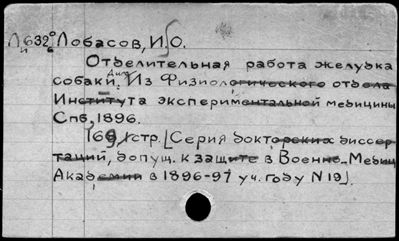 Л632 Лобасов, И.О.
и
Отделительная работа желудка
собаки. Дисс. Из Физиологического отдела
Института экспериментальной медицины
Спб, 1896.
169, 1 стр. [Серия докторских диссер-
таций, допущ. к защите в Военно-Медиц.
Академии в 1896-97 уч. году N 19].